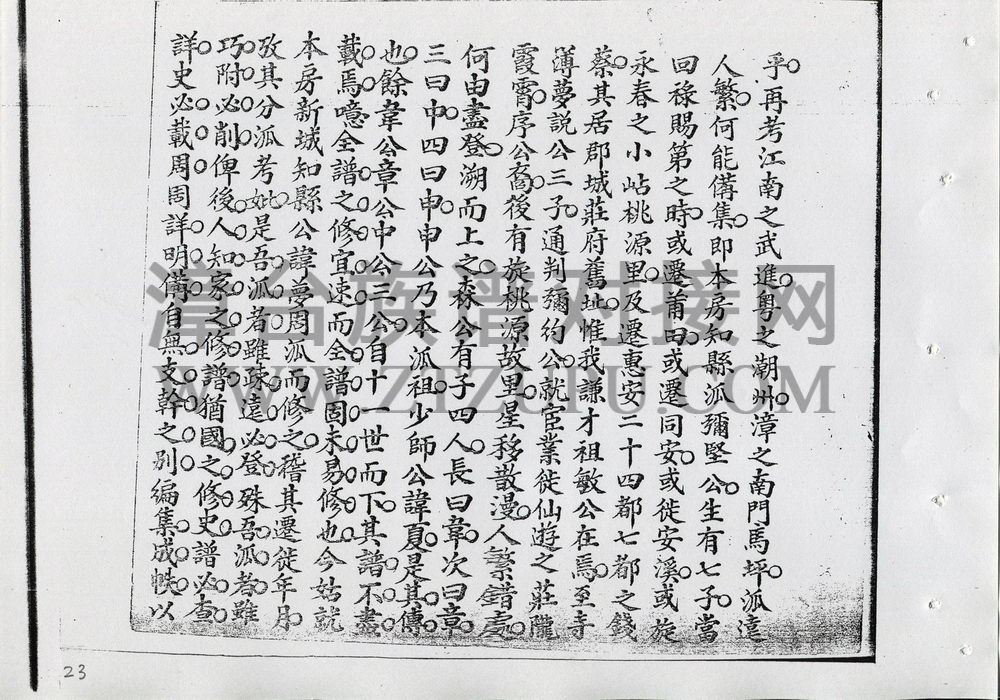 乎再考江南之武進粤之潮州漳之南門馬坪派遠
人繁何能備集即本房知縣派彌堅公生有七子當
回祿賜第之時或遷莆田或遷同安或徙安溪或旋
永春之小岵桃源里及遷惠安二十四都七都之錢
蔡其居郡城莊府舊址惟我謙才祖敏公在焉至寺
簿夢說公三子通判彌約公就宦業徙仙遊之莊隴
霞霄序公裔後有旋桃源故里星移散漫人繁錯處
何由盡登溯而上之森公有子四人長曰韋次曰章
三曰中四曰申申公乃本派祖少師公諱夏是其傳
也餘韋公章公中公三公自十一世而下其譜不盡
載焉噫全譜之修宜速而全譜固未易修也今姑就
本房新城知縣公諱夢周派而修之稽其遷徙年月
攷其分派考妣是吾派者雖疎遠必登殊吾派者雖
巧附必削俾後人知家之修譜猶國之修史譜必查
詳史必載周周詳明備自無支幹之别編集成帙以
漳台族谱对接网
WWW.ZTZUPU.COM
23